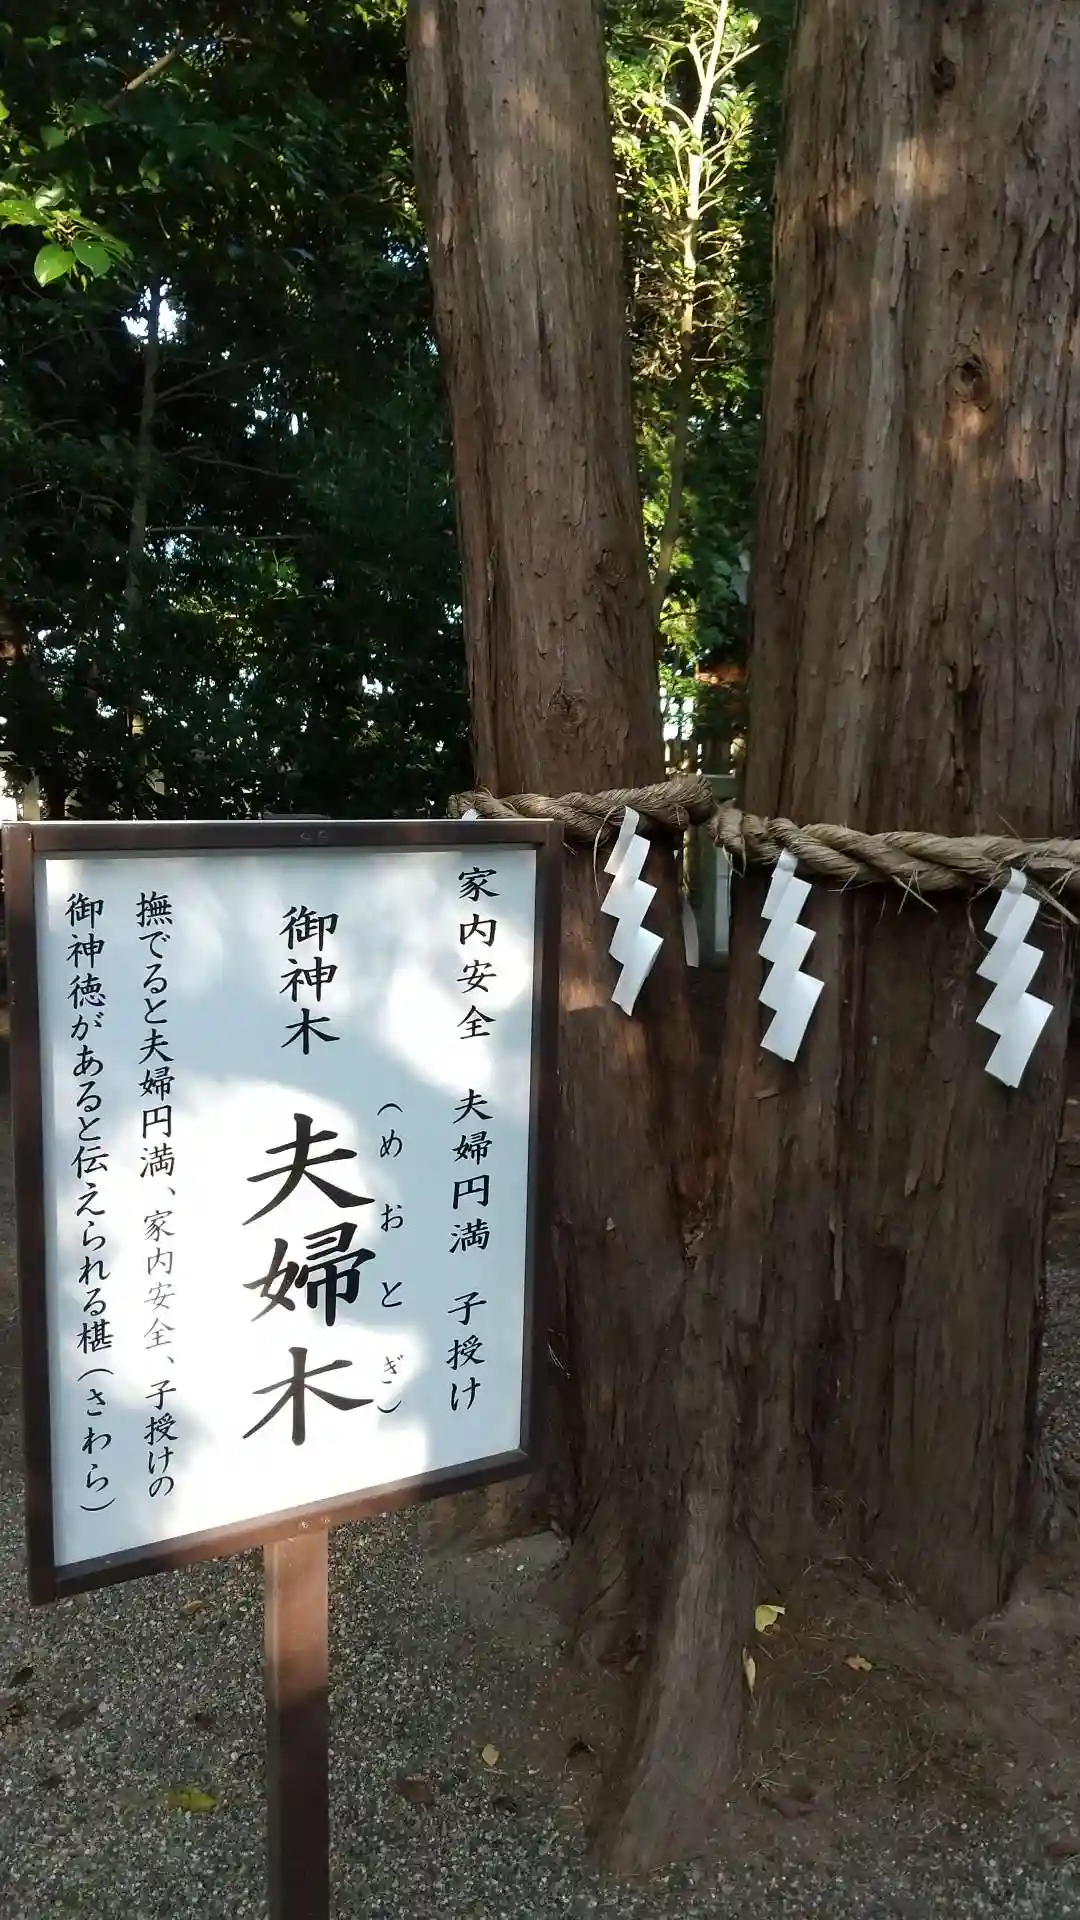 家内安全 夫婦円満 子授け
御神木 夫婦木
（めおとぎ）
撫でると夫婦円満、家内安全、子授けの
御神徳があると伝えられる椹（さわら）